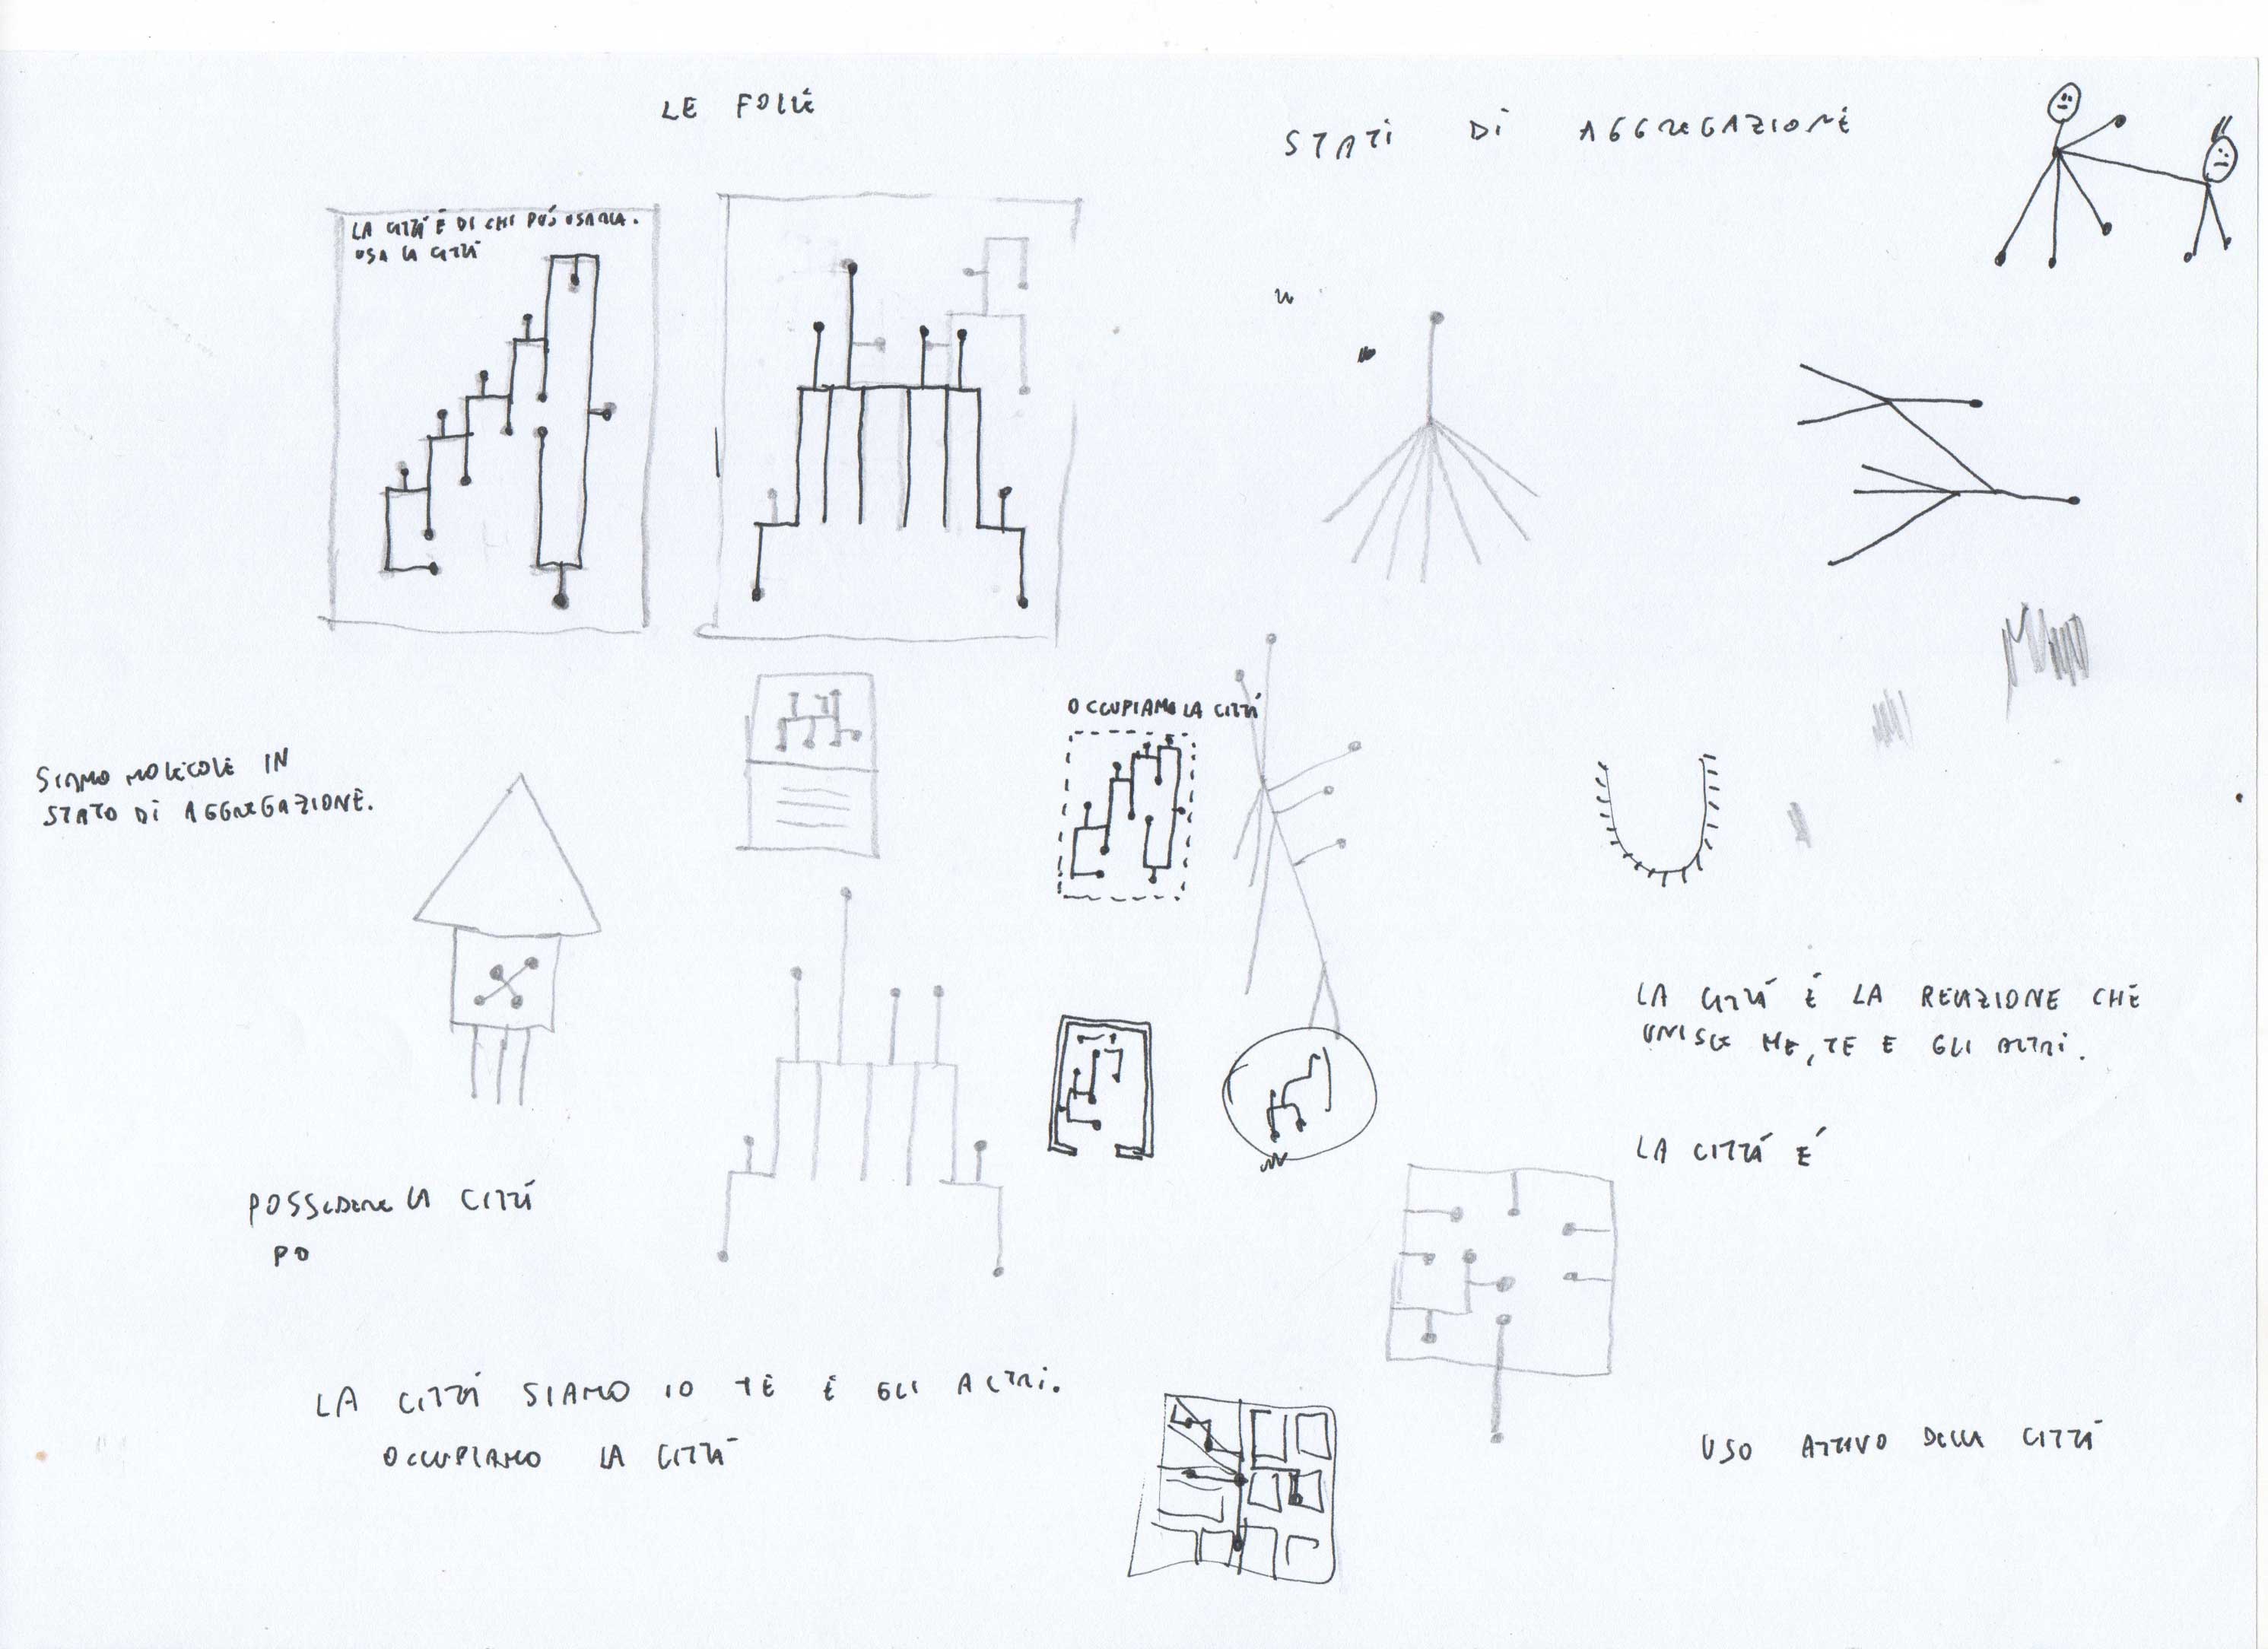 LE FOLLE
STATI DI AGGREGAZIONE
LA CITTÁ É DI CHI PUÓ USARLA.
USA LA CITTÁ
OCCUPIAMO LA CITTÁ
SIAMO MOLECOLE IN
STATO DI AGGREGAZIONE.
LA CITTÁ É LA RELAZIONE CHE
UNISCE ME, TE E GLI ALTRI.
LA CITTÁ É
POSSEDERE LA CITTÁ
PO
LA CITTÁ SIAMO IO TE E GLI ALTRI.
OCCUPIAMO LA CITTÁ
USO ATTIVO DELLA CITTÁ